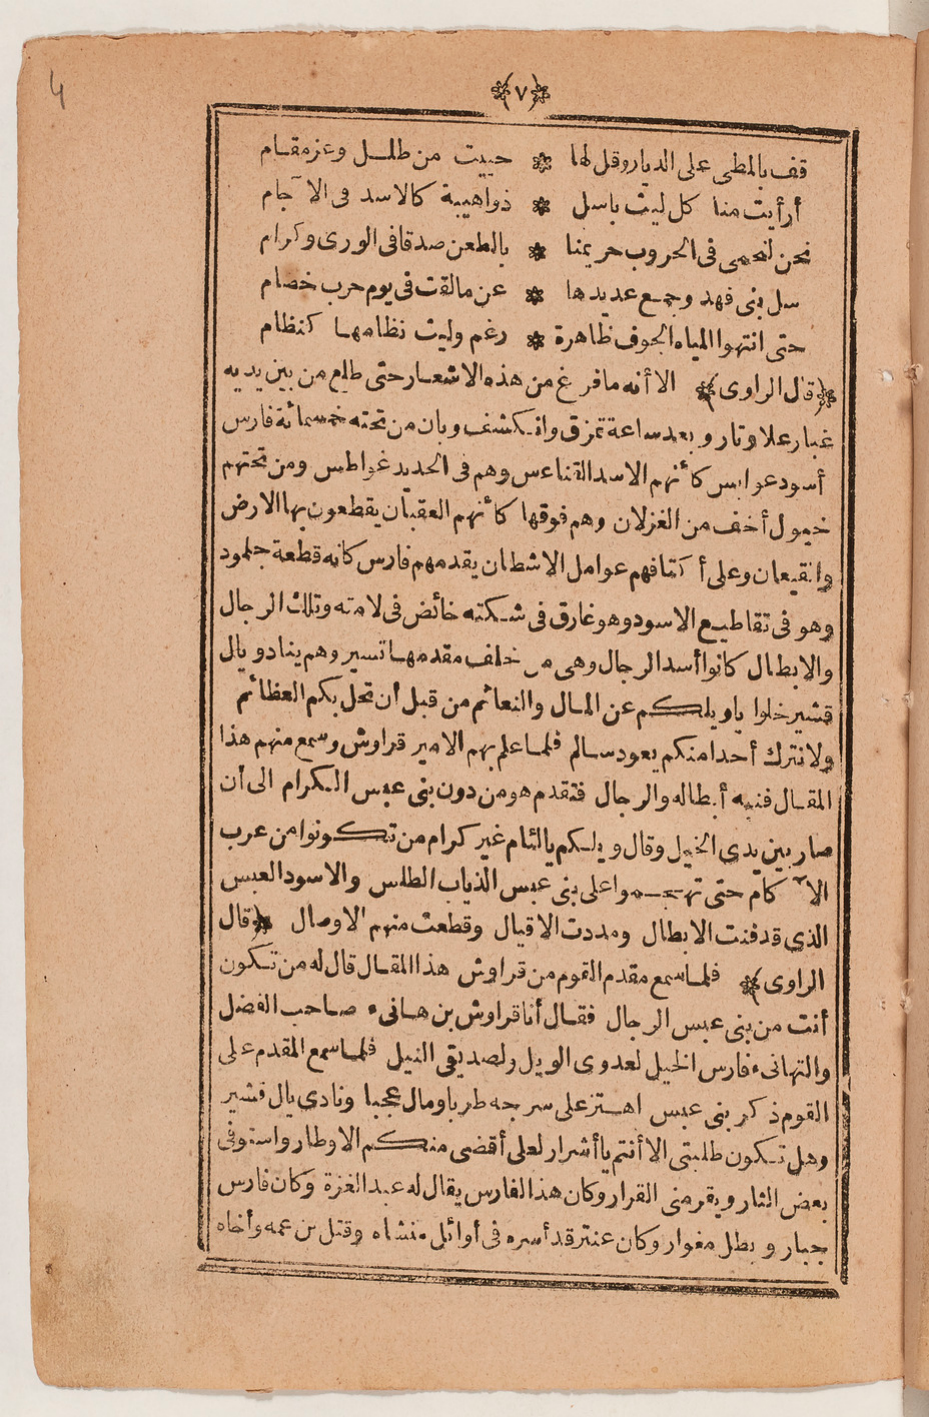 4
﴿٧﴾
قف بالمطى على الديار وقل لها * حييت من طلل وعز مقام
أرأيت منا كل ليث باسل * ذو اهيبة كالاسد فى الآجام
نحن لنحمى فى الحروب حريمنا * بالطعن صدقا فى الورى وكرام
سل بنى فهد وجمع عديدها * عن مالقت فى يوم حرب خصام
حتى انتهوا المياه الجوف ظاهرة * رغم وليث نظامها كنظام
﴿قال الراوى﴾ الا أنه مافرغ من هذه الاشعار حتى طلع من بين يديه
غبار علا وثار وبعد ساعة تمزق وانكشف وبان من تحته خمسمائة فارس
أسود عوابس كأنهم الاسد القناعس وهم فى الحديد غواطس ومن تحتهم
خيول أخف من الغزلان وهم فوقها كأنهم العقبان يقطعون بها الارض
والقيعان وعلى أكتافهم عوامل الاشطان يقدمهم فارس كانه قطعة جلمود
وهو فى تقاطيع الاسود وهو غارق فى شكته خائض فى لامته وتلك الرجال
والابطال كانوا أسد الرجال وهى من خلف مقدمها تسير وهم ينادو يال
قشير خلوا ياويلكم عن المال والنعائم من قبل أن تحل بكم العظائم
ولا نترك أحدا منكم يعود سالم فلما علم بهم الامير قراوش وسمع منهم هذا
المقال فنبه أبطاله والرجال فتقدم هو من دون بنى عبس الكرام الى أن
صار بين يدى الخيل وقال ويلكم يالئام غير كرام من تكونوا من عرب
الآكام حتى تهجموا على بنى عبس الذياب الطلس والاسود العبس
الذى قد فنت الابطال ومددت الاقيال وقطعت منهم الاوصال ﴿قال
الراوى﴾ فلما سمع مقدم القوم من قراوش هذا المقال قال له من تكون
أنت من بنى عبس الرجال فقال أنا قراوش بن هانىء صاحب الفضل
والتهانىء فارس الخيل لعدوى الويل ولصديقى النيل فلما سمع المقدم على
القوم ذكر بنى عبس اهتز على سرجه طربا ومال عجبا ونادى يال قشير
وهل تكون طلبتى الا أنتم يا أشرار لعلى أقضى منكم الاوطار واستوفى
بعض الثار ويقر منى القرار وكان هذا الفارس يقال له عبد الغزة وكان فارس
جبار وبطل مغوار وكان عنتر قد أسره فى أوائل منشاه وقتل بن عمه وأخاه